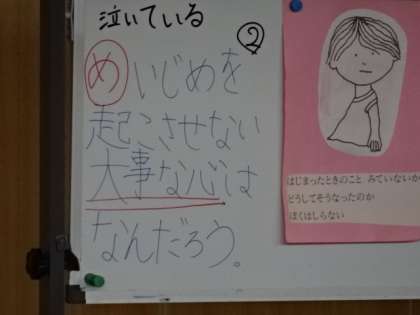 泣いている
②
めいじめを
起こさせない
大事な心は
なんだろう。
はじまったときのこと みていないか
どうしてそうなったのか
ぼくはしらない